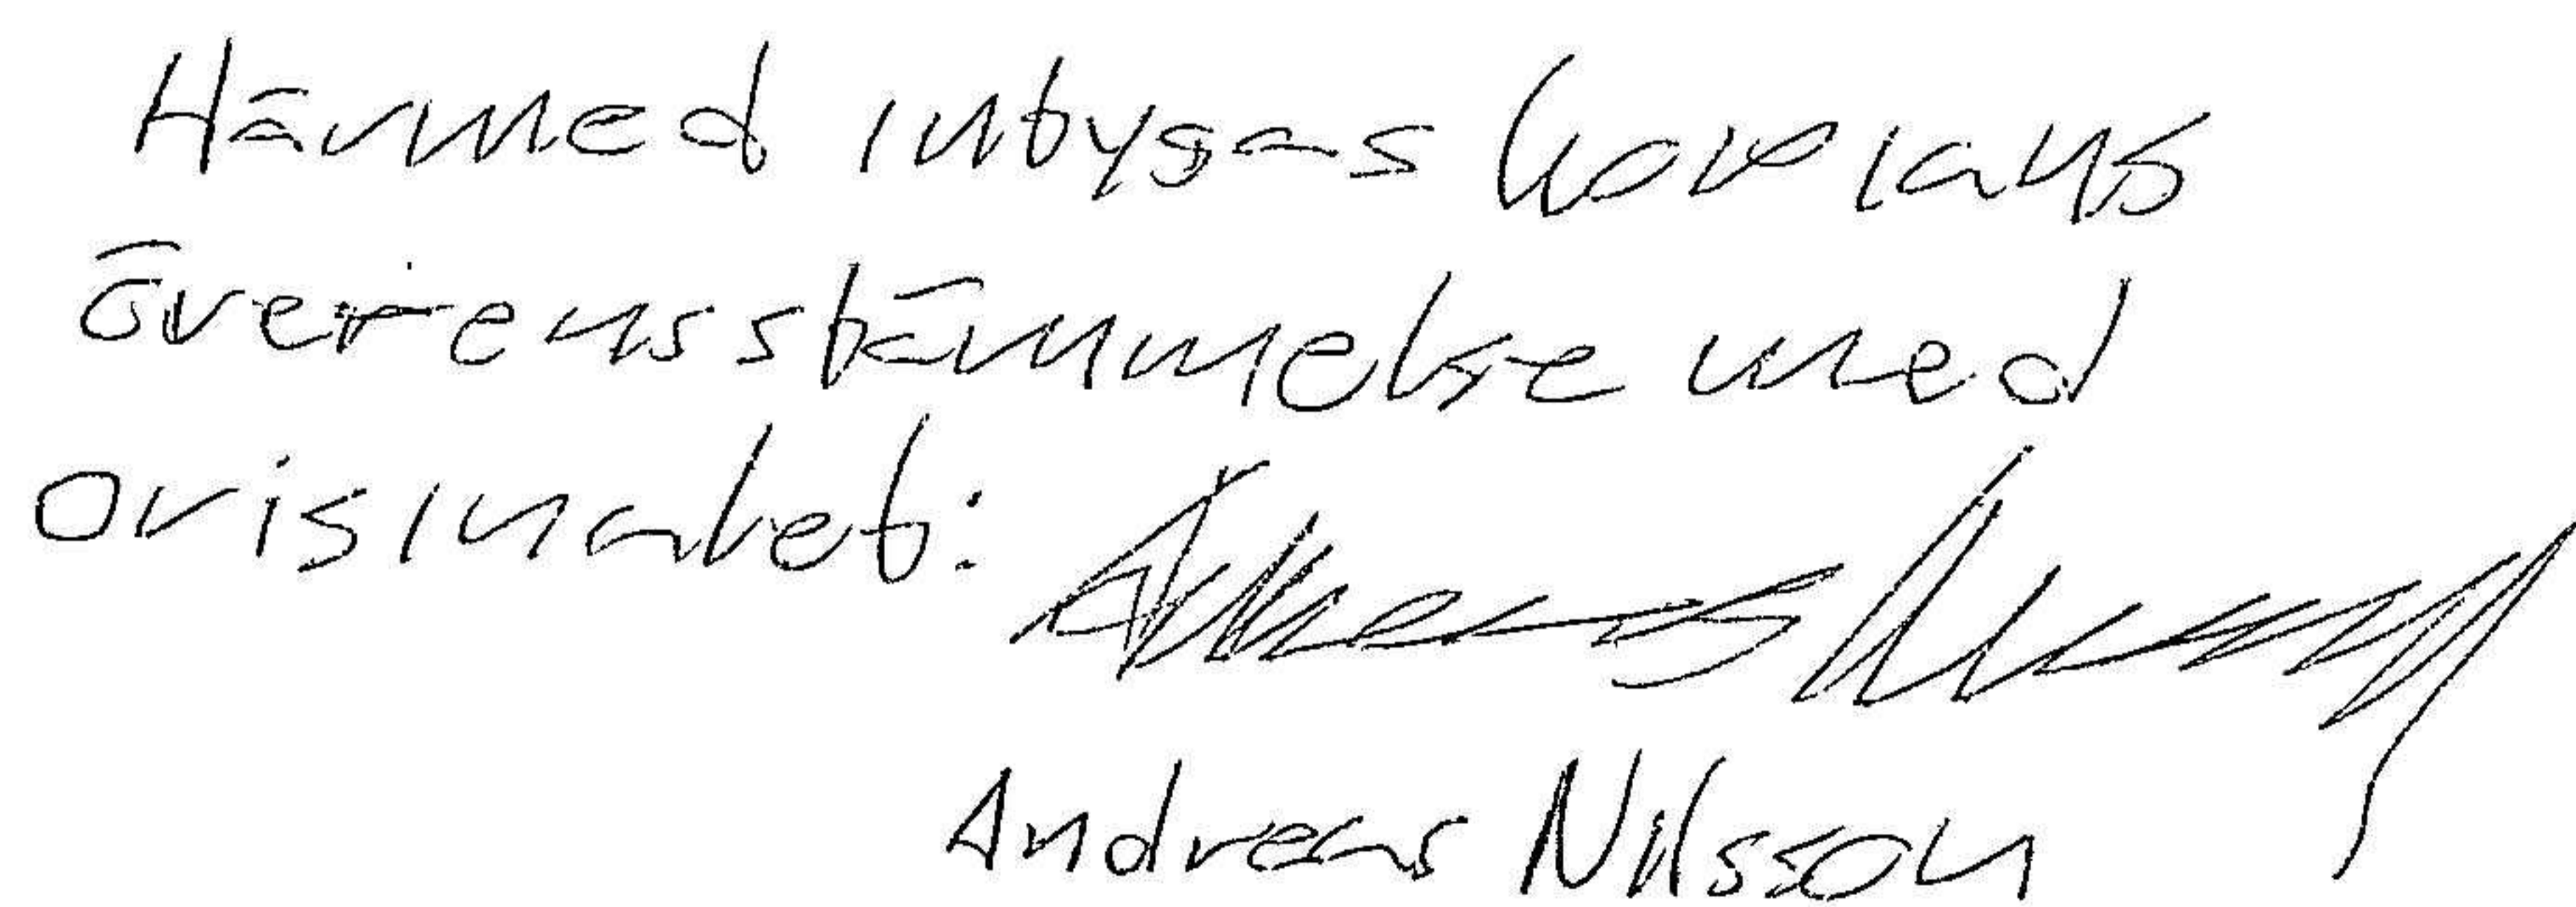 Härmed intygas kopians
överensstämmelse med
originalet:
Andreas Nilsson